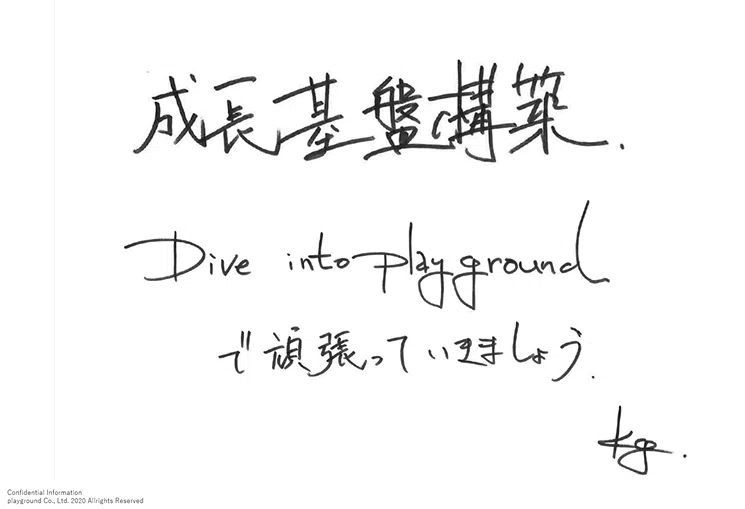 成長基盤構築.
Dive into playground
で頑張っていきましょう.
kg.
Confidential Information
playground Co., Ltd. 2020 Allrights Reserved